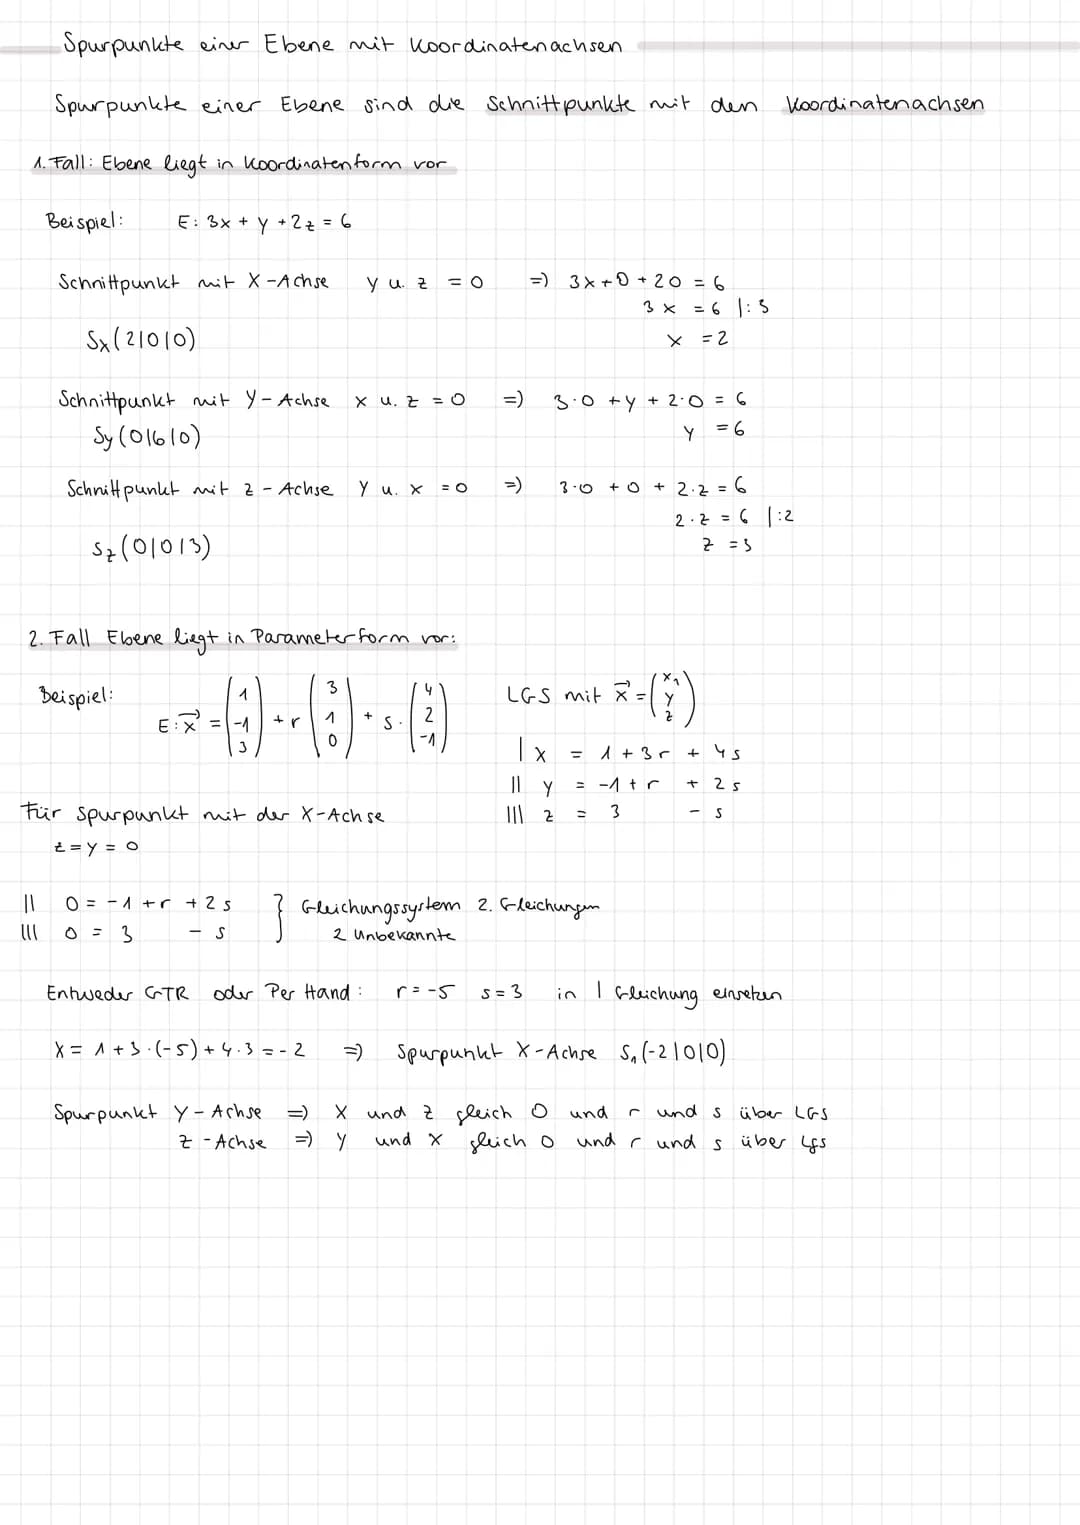 Spurpunkte einer Ebene mit Koordinatenachsen
Spurpunkte einer Ebene sind die Schnittpunkte mit den Koordinatenachsen
1. Fall: Ebene liegt in Koordinatenform vor
Beispiel: E: 3x + y + 2z = 6
Schnittpunkt mit X-Achse y u. z = 0 => 3x + 0 + 20 = 6
3x = 6 |:3
Sx(2|0|0) x = 2
Schnittpunkt mit Y-Achse x u. z = 0 => 3·0 + y + 2·0 = 6
Sy(0|6|0) y = 6
Schnittpunkt mit z-Achse y u. x = 0 => 3·0 + 0 + 2·z = 6
2·z = 6 |:2
Sz(0|0|3) z = 3
2. Fall Ebene liegt in Parameterform vor:
Beispiel: E: x⃗ = (1 -1 3) + r (3 1 0) + s · (4 2 -1) LGS mit x⃗ = (x₁ y z)
I x = 1 + 3r + 4s
II y = -1 + r + 2s
Für Spurpunkt mit der X-Achse III z = 3 - s
z = y = 0
II 0 = -1 + r + 2s } Gleichungssystem 2. Gleichungen
III 0 = 3 - s 2 Unbekannte
Entweder GTR oder Per Hand: r = -5 s = 3 in I Gleichung einsetzen
X = 1 + 3·(-5) + 4·3 = -2 => Spurpunkt X-Achse S₁(-2|0|0)
Spurpunkt Y-Achse => X und z gleich 0 und r und s über LGS
z-Achse => y und x gleich 0 und r und s über LGS